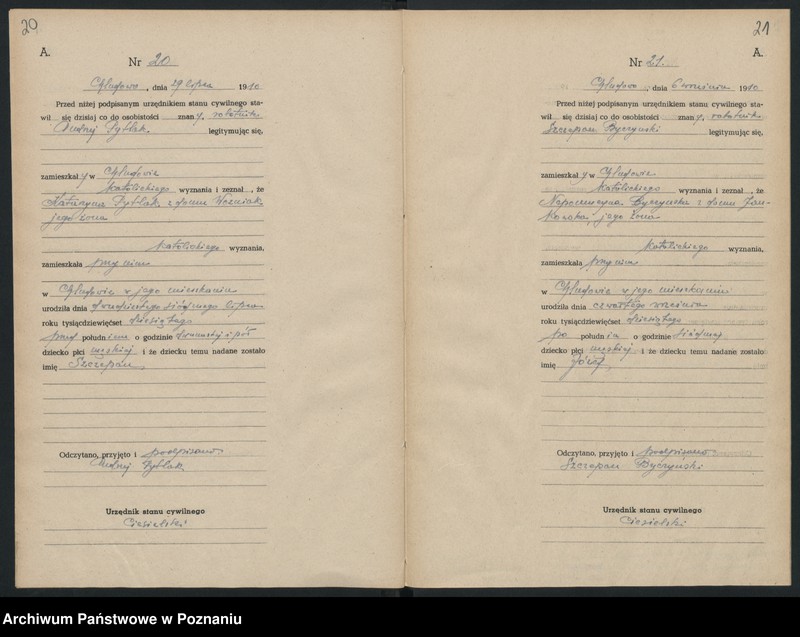 20
A.
Nr 20
Chludowo, dnia 29 lipca 1910
Przed niżej podpisanym urzędnikiem stanu cywilnego sta-
wił się dzisiaj co do osobistości znany, robotnik
Andrzej Dyblak legitymując się,
zamieszkały w Chludowie
katolickiego wyznania i zeznał, że
Katarzyna Dyblak z domu Wozniak
jego żona
katolickiego wyznania,
zamieszkała przy nim
w Chludowie w jego mieszkaniu
urodziła dnia dwudziestego siódmego lipca
roku tysiącdziewięćset dziesiątego
przed południem o godzinie dwunastej i pół
dziecko płci męskiej i że dziecku temu nadane zostało
imię Szczepan
Odczytano, przyjęto i podpisano
Andrzej Dyblak
Urzędnik stanu cywilnego
Ciesielski
21
A.
Nr 21.
Chludowo, dnia 6 września 1910
Przed niżej podpisanym urzędnikiem stanu cywilnego sta-
wił się dzisiaj co do osobistości znany, robotnik
Szczepan Byczyński legitymując się,
zamieszkały w Chludowie
katolickiego wyznania i zeznał, że
Nepomucyna Byczyńska z domu Jan-
kowska, jego żona
katolickiego wyznania,
zamieszkała przy nim
w Chludowie w jego mieszkaniu
urodziła dnia czwartego września
roku tysiącdziewięćset dziesiątego
po południa o godzinie siódmej
dziecko płci męskiej i że dziecku temu nadane zostało
imię Józef
Odczytano, przyjęto i podpisano
Szczepan Byczyński
Urzędnik stanu cywilnego
Ciesielski
Archiwum Państwowe w Poznaniu